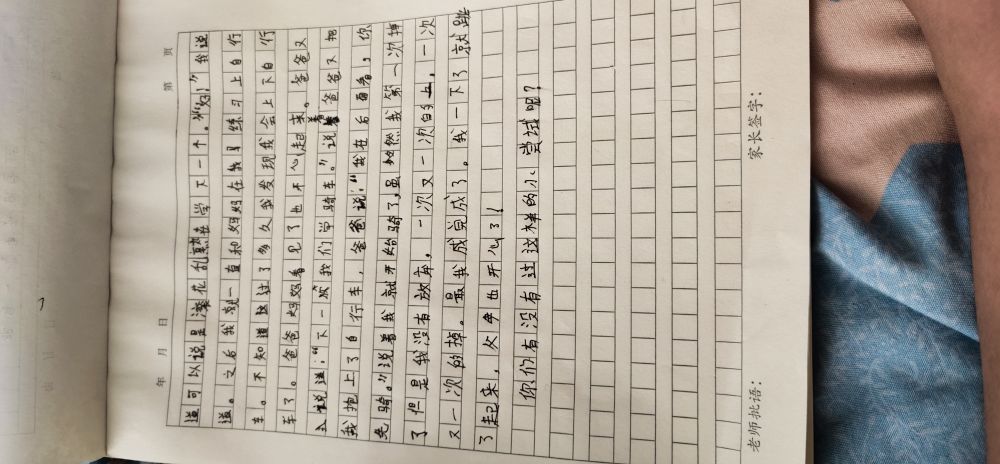 年 月 日 第 页
道可以说是滚花乱熟在学下一个。"好！"我说
道。文后我就一直和妈妈在我练习上自行
车。不知道这过了多久我发现我会上下自行
车了。爸爸妈妈看见了也开心起来。爸爸又
说道："下一次我们学骑车。"说着爸爸又把
我抱上了自行车，爸爸说："我在后面看，你
先骑。"说着我就开始骑了，虽然我第一次掉
了，但是我没有放弃。一次又一次的上，一次
又一次的掉。最我成完成了。我一下了就跳
了起来，父母也开心了！
你们有没有过这样的小尝试呢？
老师批语： 家长签字：